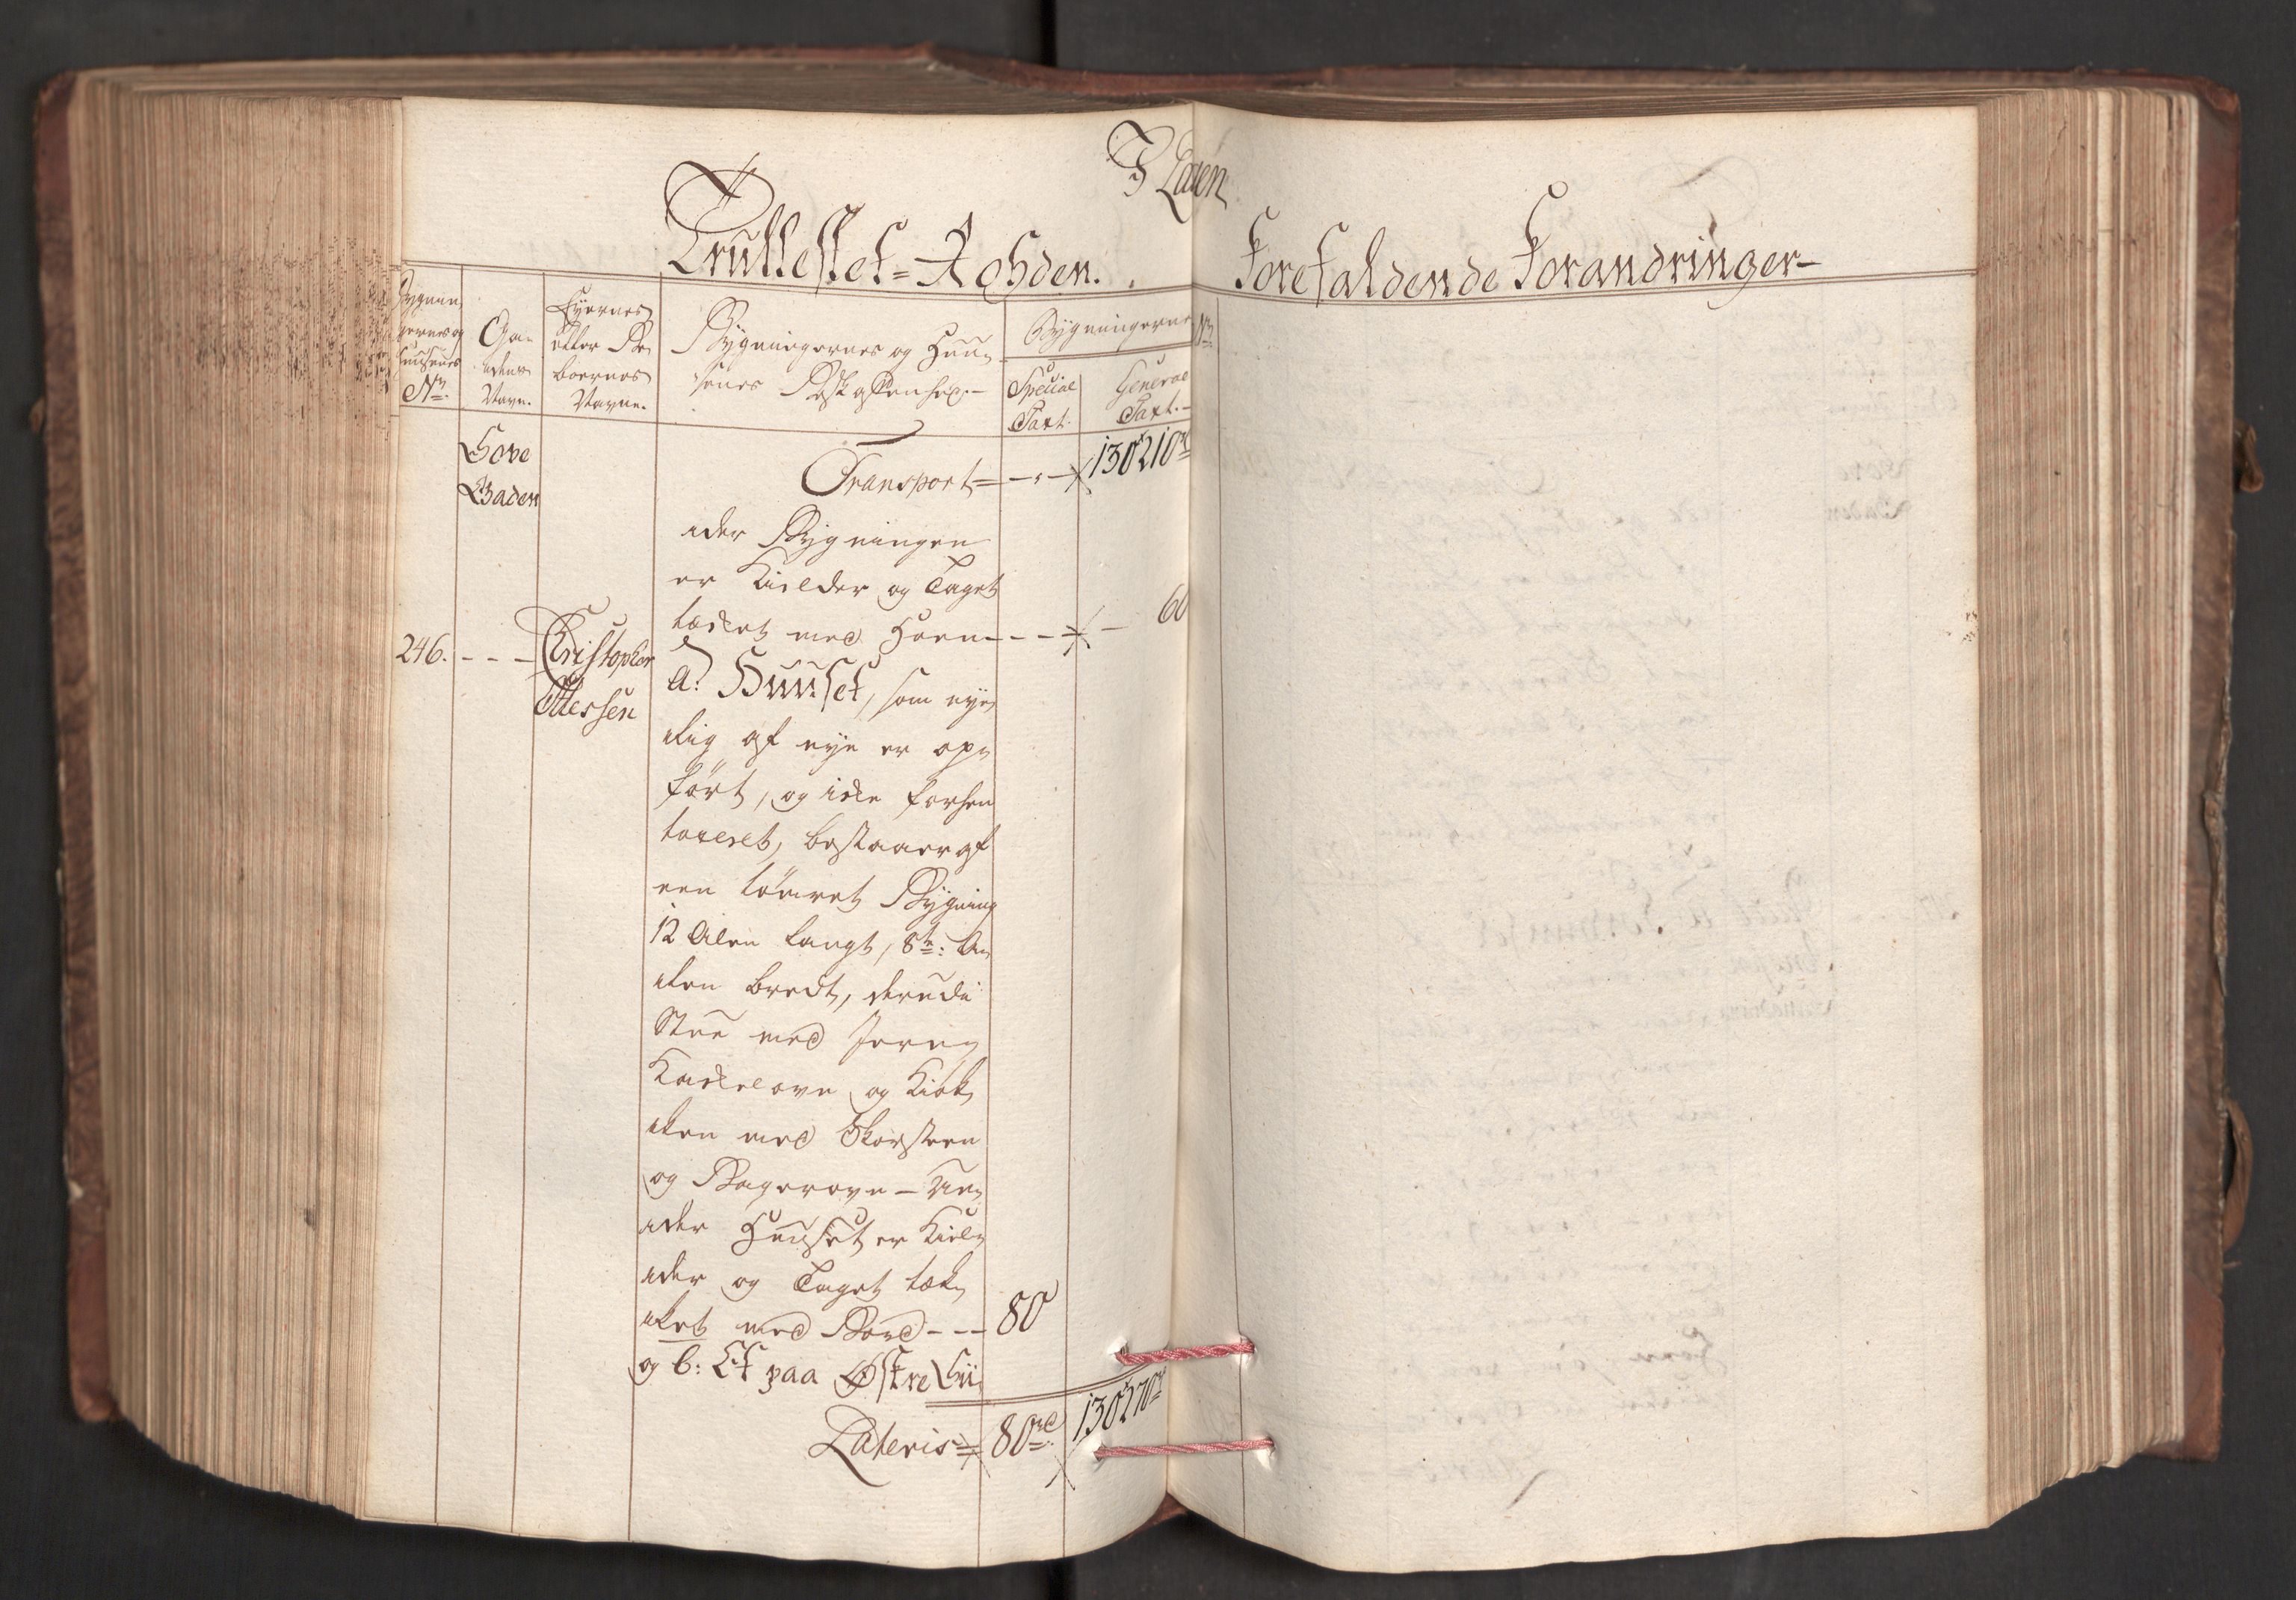 I Laven
Trullestet=Rohden.
Forefaldende Forandringer
Bygnin
gernes og
Huusenes
No.
Ga-
dens
Navn.
Eyernes
eller Be
boernes
Navne.
Bygningernes og Huu
senes Beskaffenhed.
Bygningernes
Special
Taxt.
General
Taxt.
No.
Hove
Gaden
Transport = 130210 rd
der Bygningen
er Kielder og Taget
tæcket med - - - 60
246. - - - Christopher
Ottessen
a: Huuset, som nye
lig af nye er op
ført, og icke forhen
taxeret, bestaaer af
een tømret Bygning
12 Alen langt, 8te: A
len bredt, derudi
Stue med Jern
Kackelovn og Kiøk
ken med Skorsteen
og Bagerovn – Un
der Huuset er Kiel
der og Taget tæk
ket med Bord - - - 80
og b: Et paa Østre Sii
Lateris = 80 rd 130270 rd